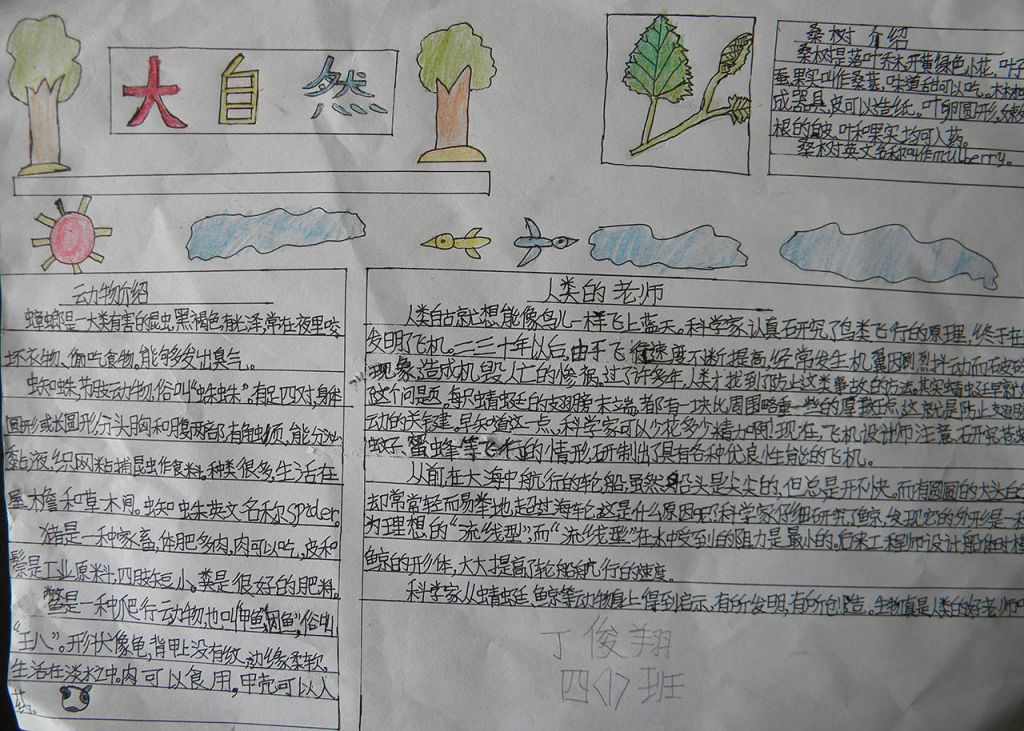 大自然
桑树介绍
桑树是落叶乔木开黄绿色小花,叶子
蚕果实叫作桑葚,味道甜可以吃。木材
成器具,皮可以造纸。叶卵圆形,嫩
根的白皮、叶和果实均可入药。
桑树英文名称叫作mulberry。
动物介绍
蟑螂是一大类有害的昆虫,黑褐色有光泽,常在夜里咬
坏衣物、偷吃食物。能够发出臭气。
蜘蛛,节肢动物,俗叫“蛛蛛”。有足四对,身体
圆形或长圆形分头胸和腹两部有触须,能分泌
黏液,织网粘捕昆虫作食料。种类很多,生活在
屋檐和草木间。蜘蛛英文名称spider。
猪是一种家畜,体肥多肉,肉可以吃,皮和
鬃是工业原料,四肢短小。粪是很好的肥料。
鳖是一种爬行动物,也叫甲鱼 鱼”,俗叫
“王八”。形状像龟,背甲上没有纹,边缘柔软。
生活在淡水中。肉可以食用,甲壳可以入
药。
人类的老师
人类自古就想能像鸟儿一样飞上蓝天。科学家认真研究了鸟类飞行的原理,终于在
发明了飞机。二三十年以后,由于飞行速度不断提高,经常发生机翼因剧烈抖动而
现象,造成机毁人亡的惨祸。过了许多年,人类才找到了防止这类事故的方法。其实蜻蜓
这个问题,每只蜻蜓的翅膀末端,都有一块比周围略重一些的厚斑点,这就是防止
动的关键。早知道这一点,科学家可以少花多少精力啊!现在,飞机设计师注意研究苍蝇
蚊子、蜜蜂等飞行的情形,研制出了具有各种优良性能的飞机。
从前,在大海中航行的轮船,虽然船头是尖尖的,但总是开不快。而有圆圆的大头
却常常轻而易举地超过海轮。这是什么原因呢?科学家仔细研究了鲸,发现它的外形是一种
为理想的“流线型”,而“流线型”在水中受到的阻力是最小的。后来工程师设计船体时模
鲸的形体,大大提高了轮船航行的速度。
科学家从蜻蜓、鲸等动物身上得到启示,有所发明,有所创造。生物真是人类的好老师
丁俊翔
四<1>班